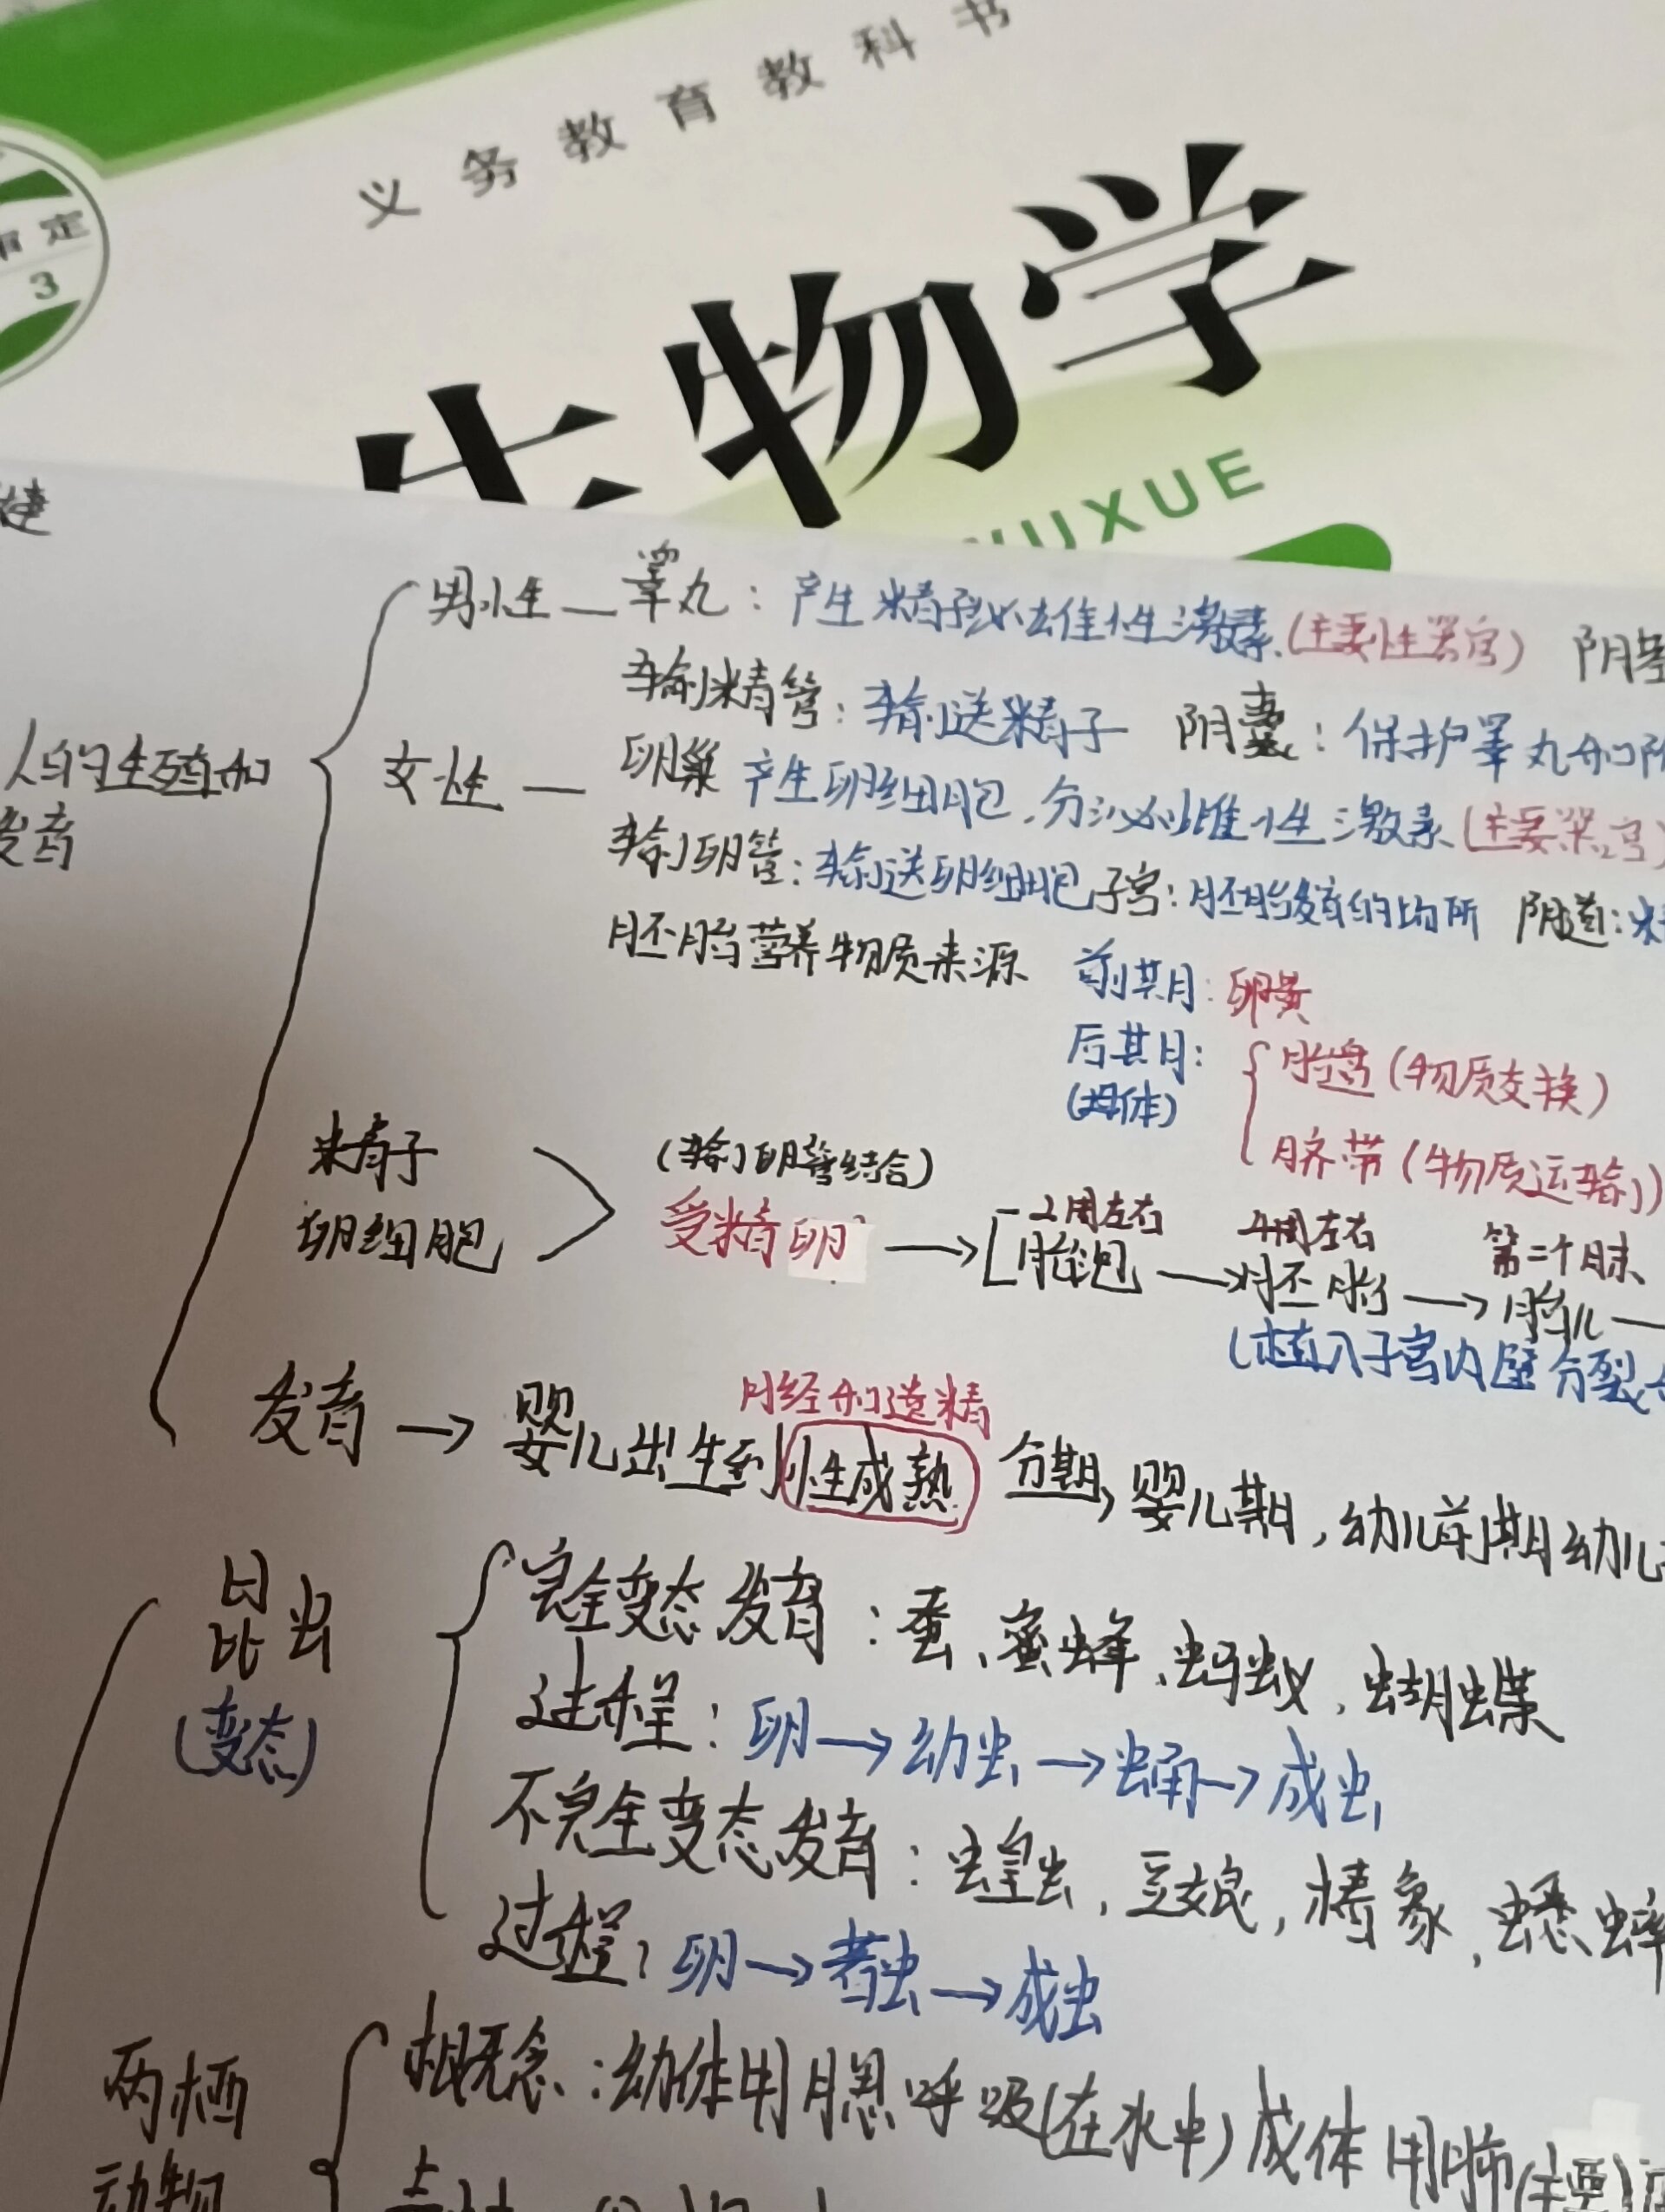 义务教育教科书
审定
3
生物学
WUXUE
男性— 睾丸：产生精子分泌雄性激素(主要性器官) 阴茎
输精管：输送精子 阴囊：保护睾丸和
人的生殖和
发育
女性— 卵巢 产生卵细胞,分泌雌性激素(主要器官)
输卵管：输送卵细胞 子宫：胚胎发育的场所 阴道：
胚胎营养物质来源 前期：卵黄
后期：
(母体)
胎盘(物质交换)
脐带(物质运输)
精子
卵细胞
(输卵管结合)
受精卵 → 胚泡 → 胚胎 → 胎儿 —
2周左右 4周左右 第二个月末
(植入子宫内壁分裂
发育 → 婴儿出生到性成熟 分期,婴儿期,幼儿前期 幼儿
月经和遗精
昆虫
(变态)
完全变态发育：蚕、蜜蜂、蚂蚁,蝴蝶
过程：卵→幼虫→蛹→成虫
不完全变态发育：蝗虫,豆娘,椿象,蟋蟀
过程：卵→若虫→成虫
两栖
动物
概念：幼体用腮呼吸(在水中)成体用肺(主要)